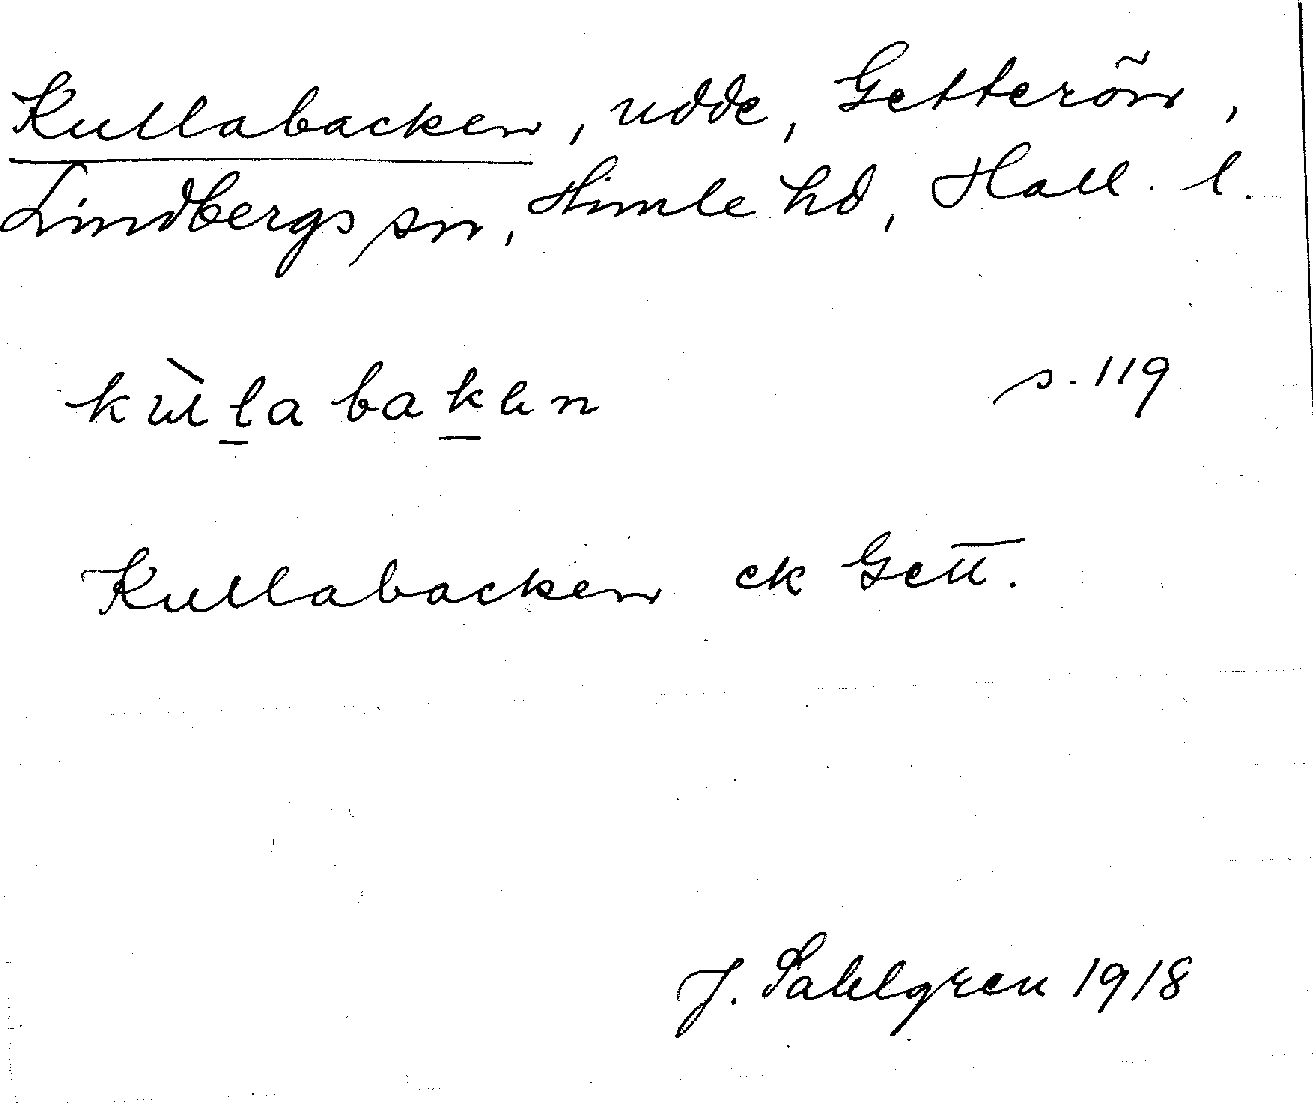 Kullabacken, udde, Getterön,
Lindbergs sn, Himle hd, Hall. l.
kùl̲abak̲ən s. 119
Kullabacken ek Gett.
J. Sahlgren 1918